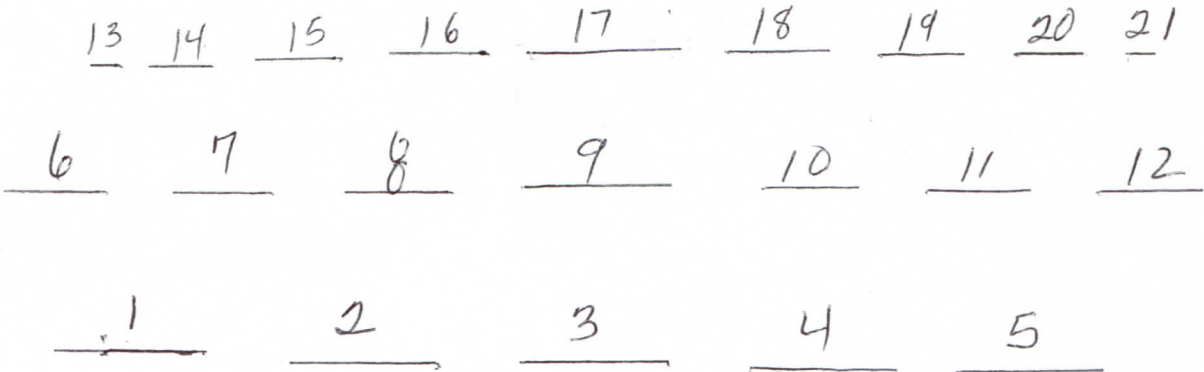 13 14 15 16 17 18 19 20 21
6 7 8 9 10 11 12
1 2 3 4 5